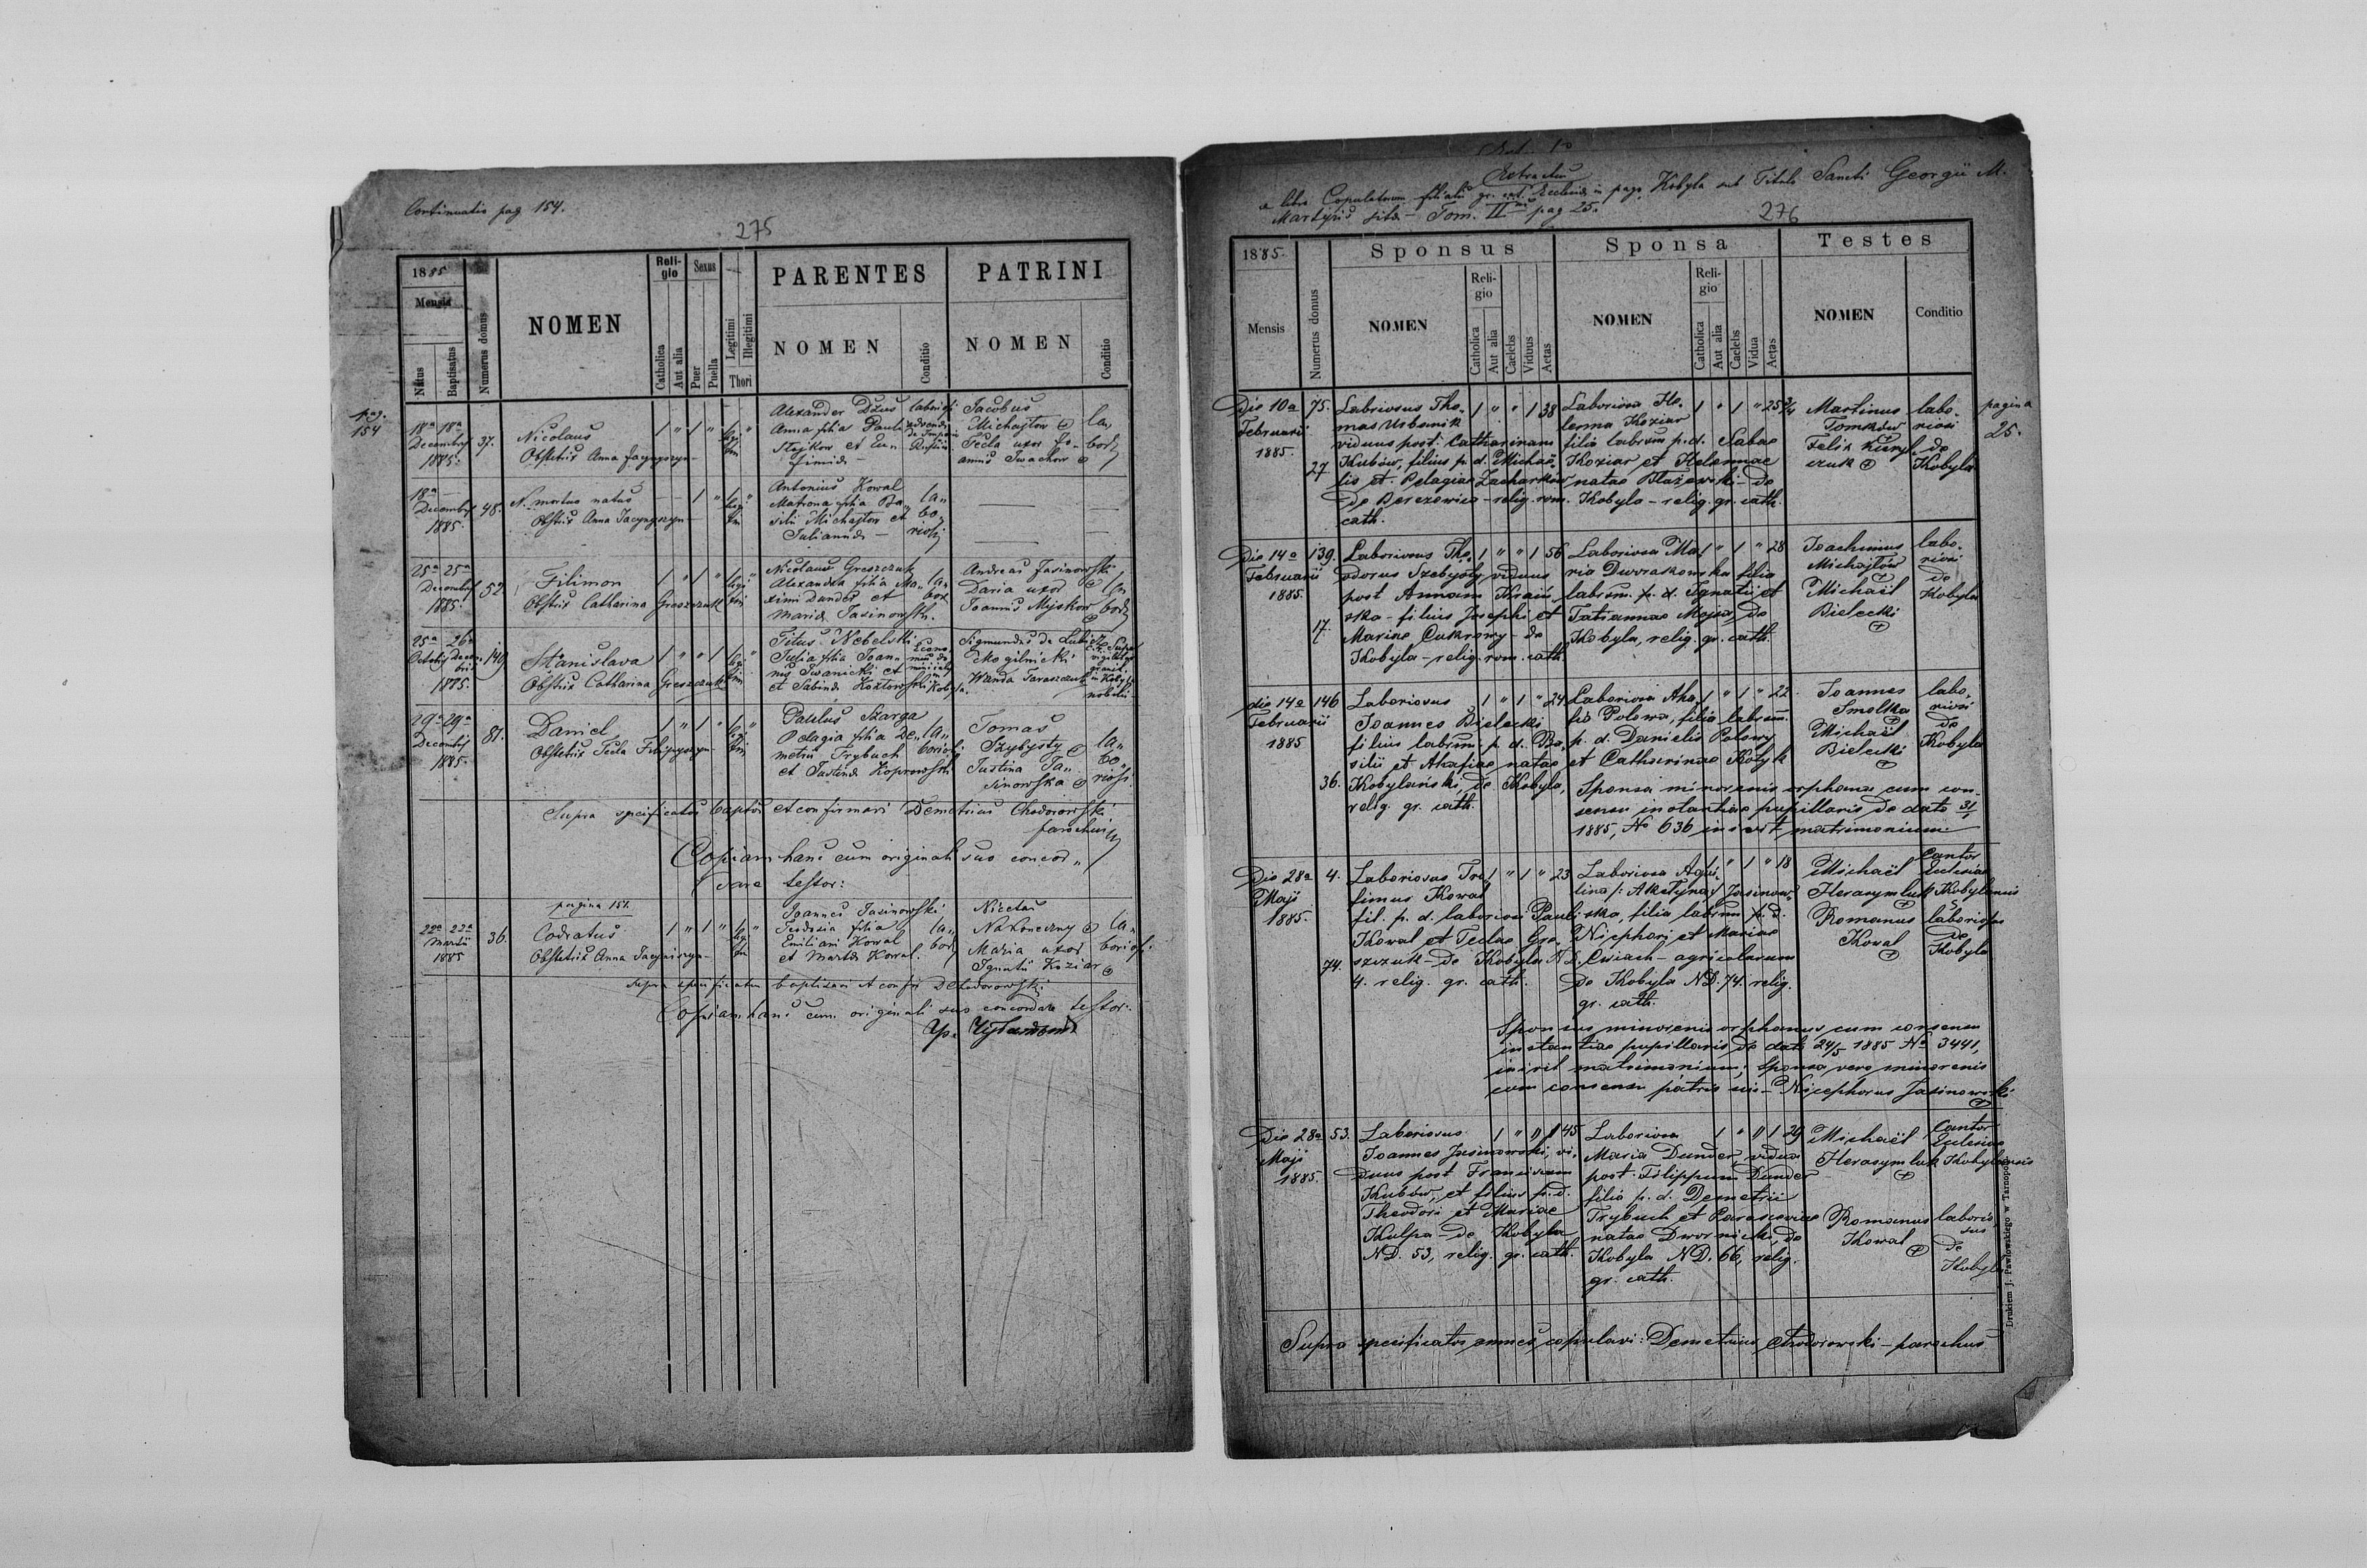 Continuatio pag 154.
275
1885
Mensis
Natus
Baptisatus
Numerus domus
NOMEN
Religio
Catholica
Aut alia
Sexus
Puer
Puella
Legitimi
Illegitimi
Thori
PARENTES
NOMEN
Conditio
PATRINI
NOMEN
Conditio
pag.
154
18a 18a
Decembris
1885.
37.
Nicolaus
Obstetrix Anna
Alexander Dżus
Anna filia Pauli
Stojkow et Eu„
fimiae
Jacobus
Michajłow
Tecla uxor Jo„
annis Iwachow
la„
bor
18a
Decembris
1885.
48.
N. mortus natus
Obstetrix Anna Jacynyszyn
Antonius Kowal
Matrona filia Ba„
silii Michajłow et
Julianna
la„
bo„
riosi
25a 25a
Decembris
1885.
52.
Filimon
Obstetrix Catharina Greszczuk
Nicolaus Greszczuk
Alexandra filia Ma„
ximi Dunder et
Maria Jasinowski.
la„
bor
Andreas Jasinowski
Daria uxor
Joannis Myskow
la„
bor
25a 26a
1885.
149
Stanislava
Obstetrix Catharina Greszczuk
Titus Nebelski
Julia filia Joan„
nis Iwanicki et
et Sabina Kozłowski
Sigmundus de
Mogilnicki
Wanda Taraszczuk
29a 29a
Decembris
1885.
81.
Daniel
Obstetrix Tecla Filipyszyn
Paulus Szarga
Pelagia filia De„
metrii Trybuch
et Justina Koprowski
la„
boriosi
Tomas
Szybysty
Justina Ja„
sinowska
la„
bo„
riosi
Supra specificatos baptisavi et confirmavi Demetrius Chodorowski
parochus
Copiam hanc cum originali suo concor„
dare testor:
pagina 151.
22a 22a
Martii
1885
36.
Codratus
Obstetrix Anna Jacyniszyn
Joannes Jasinowski
Teodosia filia
Emiliani Kowal
et Marta Kowal.
la„
bor
Nicetas
Nakoneczny
Maria uxor
Ignatii Koziar
la„
boriosi
Supra specificatum baptisavi et confir DChodorowski
Copiam hanc cum originali suo concordare testor.
Extractus
e libro Copulatorum filialis gr. cat. Ecclesiae in pago Kobyla sub Titulo Sancti Georgii M.
Martyris sitae – Tom. II pag 25.
276
1885.
Mensis
Numerus domus
Sponsus
NOMEN
Religio
Catholica
Aut alia
Caelebs
Viduus
Aetas
Sponsa
NOMEN
Religio
Catholica
Aut alia
Caelebs
Vidua
Aetas
Testes
NOMEN
Conditio
pagina
25.
Die 10a
Februarii
1885.
75.
27
Laboriosus Tho„
mas Urbanik
viduus post. Catharinam
Kubów, filius p. d. Michaë„
lis et Pelagiae Zacharków
de Berezowica – relig. rom.
cath.
1 " " 1 38
Laboriosa He„
lenna Koziar
filia labrsm p. d. Sabae
Koziar et Helennae
natae Błażewski – de
Kobyla – relig. gr. cath.
1 " 1 " 25 3/4
Martinus
Tomków
Felix Kury„
czuk
labo„
riosi
de
Kobyla
Die 14a
Februarii
1885.
139.
17.
Laboriosus The„
odorus Szebysty viduus
post Annam Krain„
ska – filius Josephi et
Mariae Cukrowy – de
Kobyla – relig. rom. cath.
1 " " 1 56
Laboriosa Ma„
ria Dworakowska filia
labrsm. p. d. Ignatii et
Tatiannae Mojsa, de
Kobyla, relig. gr. cath.
1 " 1 " 28
Joachimus
Michajłow
Michaël
Bielecki
labo„
riosi
de
Kobyla
die 14a
Februarii
1885
146
36.
Laboriosus
Joannes Bielecki
filius labrsm. p. d. Ba„
silii et Akafiae natae
Kobylański, de Kobyla,
relig. gr. cath.
1 " 1 " 24
Laboriosa Aka„
fia Polowa, filia labrsm.
p. d. Danielis Polowy
et Catharinae Kotyk
1 " 1 " 22
Sponsa minorenis orphana cum con„
sensu instantiae pupillaris de dato 31/1
1885, No 636 inivit matrimonium.
Joannes
Smolka
Michaël
Bielecki
labo„
riosi
de
Kobyla
Die 28a
Maji
1885
4.
74.
Laboriosus Tro„
fimus Kowal
fil. p. d. laborios Pauli
Kowal et Teclae Gre„
szczuk – de Kobyla ND.
4. relig. gr. cath.
1 " 1 " 23
Laboriosa Aqui„
lina /: Aketyna:/ Jasinow„
ska, filia labrsm p. d.
Nicephori et Mariae
Cwiach – agricolarum
de Kobyla ND. 74. relig.
gr. cath.
1 " 1 " 18
Michaël
Herasymluk
Romanus
Kowal
Cantor
Eclesiae
Kobylensis
laboriosus
de
Kobyla
Sponsus minorenis orphanus cum consensu
instantiae pupillaris de dato 24/5 1885 No 3441,
inivit matrimonium; sponsa vero minorenis
cum consensu patris sui – Nicephorus Jasinowski
Die 28a
Maji
1885.
53.
Laboriosus
Joannes Jasinowski, vi„
duus post Franciscam
Kubów, et filius p. d.
Theodori et Mariae
Kulpa – de Kobyla
ND. 53, relig. gr. cath.
45
Laboriosa
Maria Dunder, vidua
post Filippum Dunder
filia p. d. Demetrii
Trybuch et Parasceviae
natae Dwornicki, de
Kobyla ND. 66, relig.
gr. cath.
29
Michaël
Herasymluk
Romanus
Kowal
Cantor
Eclesiae
Kobylensis
laborio„
sus
de
Kobyla
Supra specificatos omnes copulavi: Demetrius Chodorowski – parochus
Drukiem J. Pawłowskiego w Tarnopolu